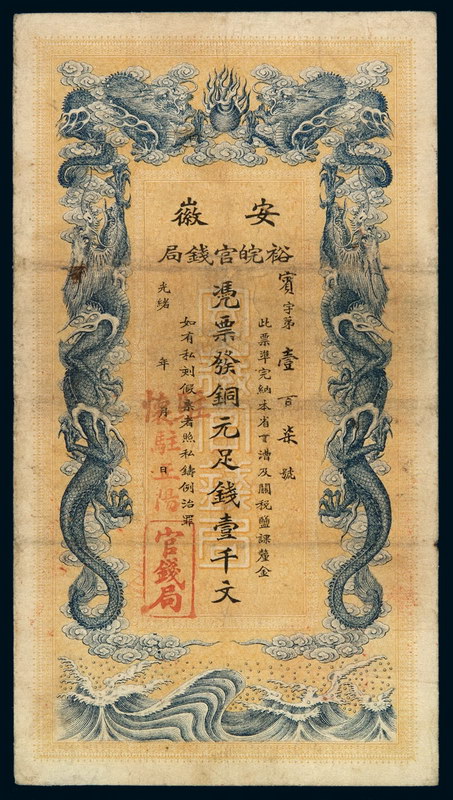 安徽
裕皖官錢局
賓字第壹百柒號
此票準完納本省丁漕及關稅鹽課釐金
憑票發銅元足錢壹千文
如有私刻假票者照私鑄例治罪
光緒 年 月 日
駐正陽
官錢局